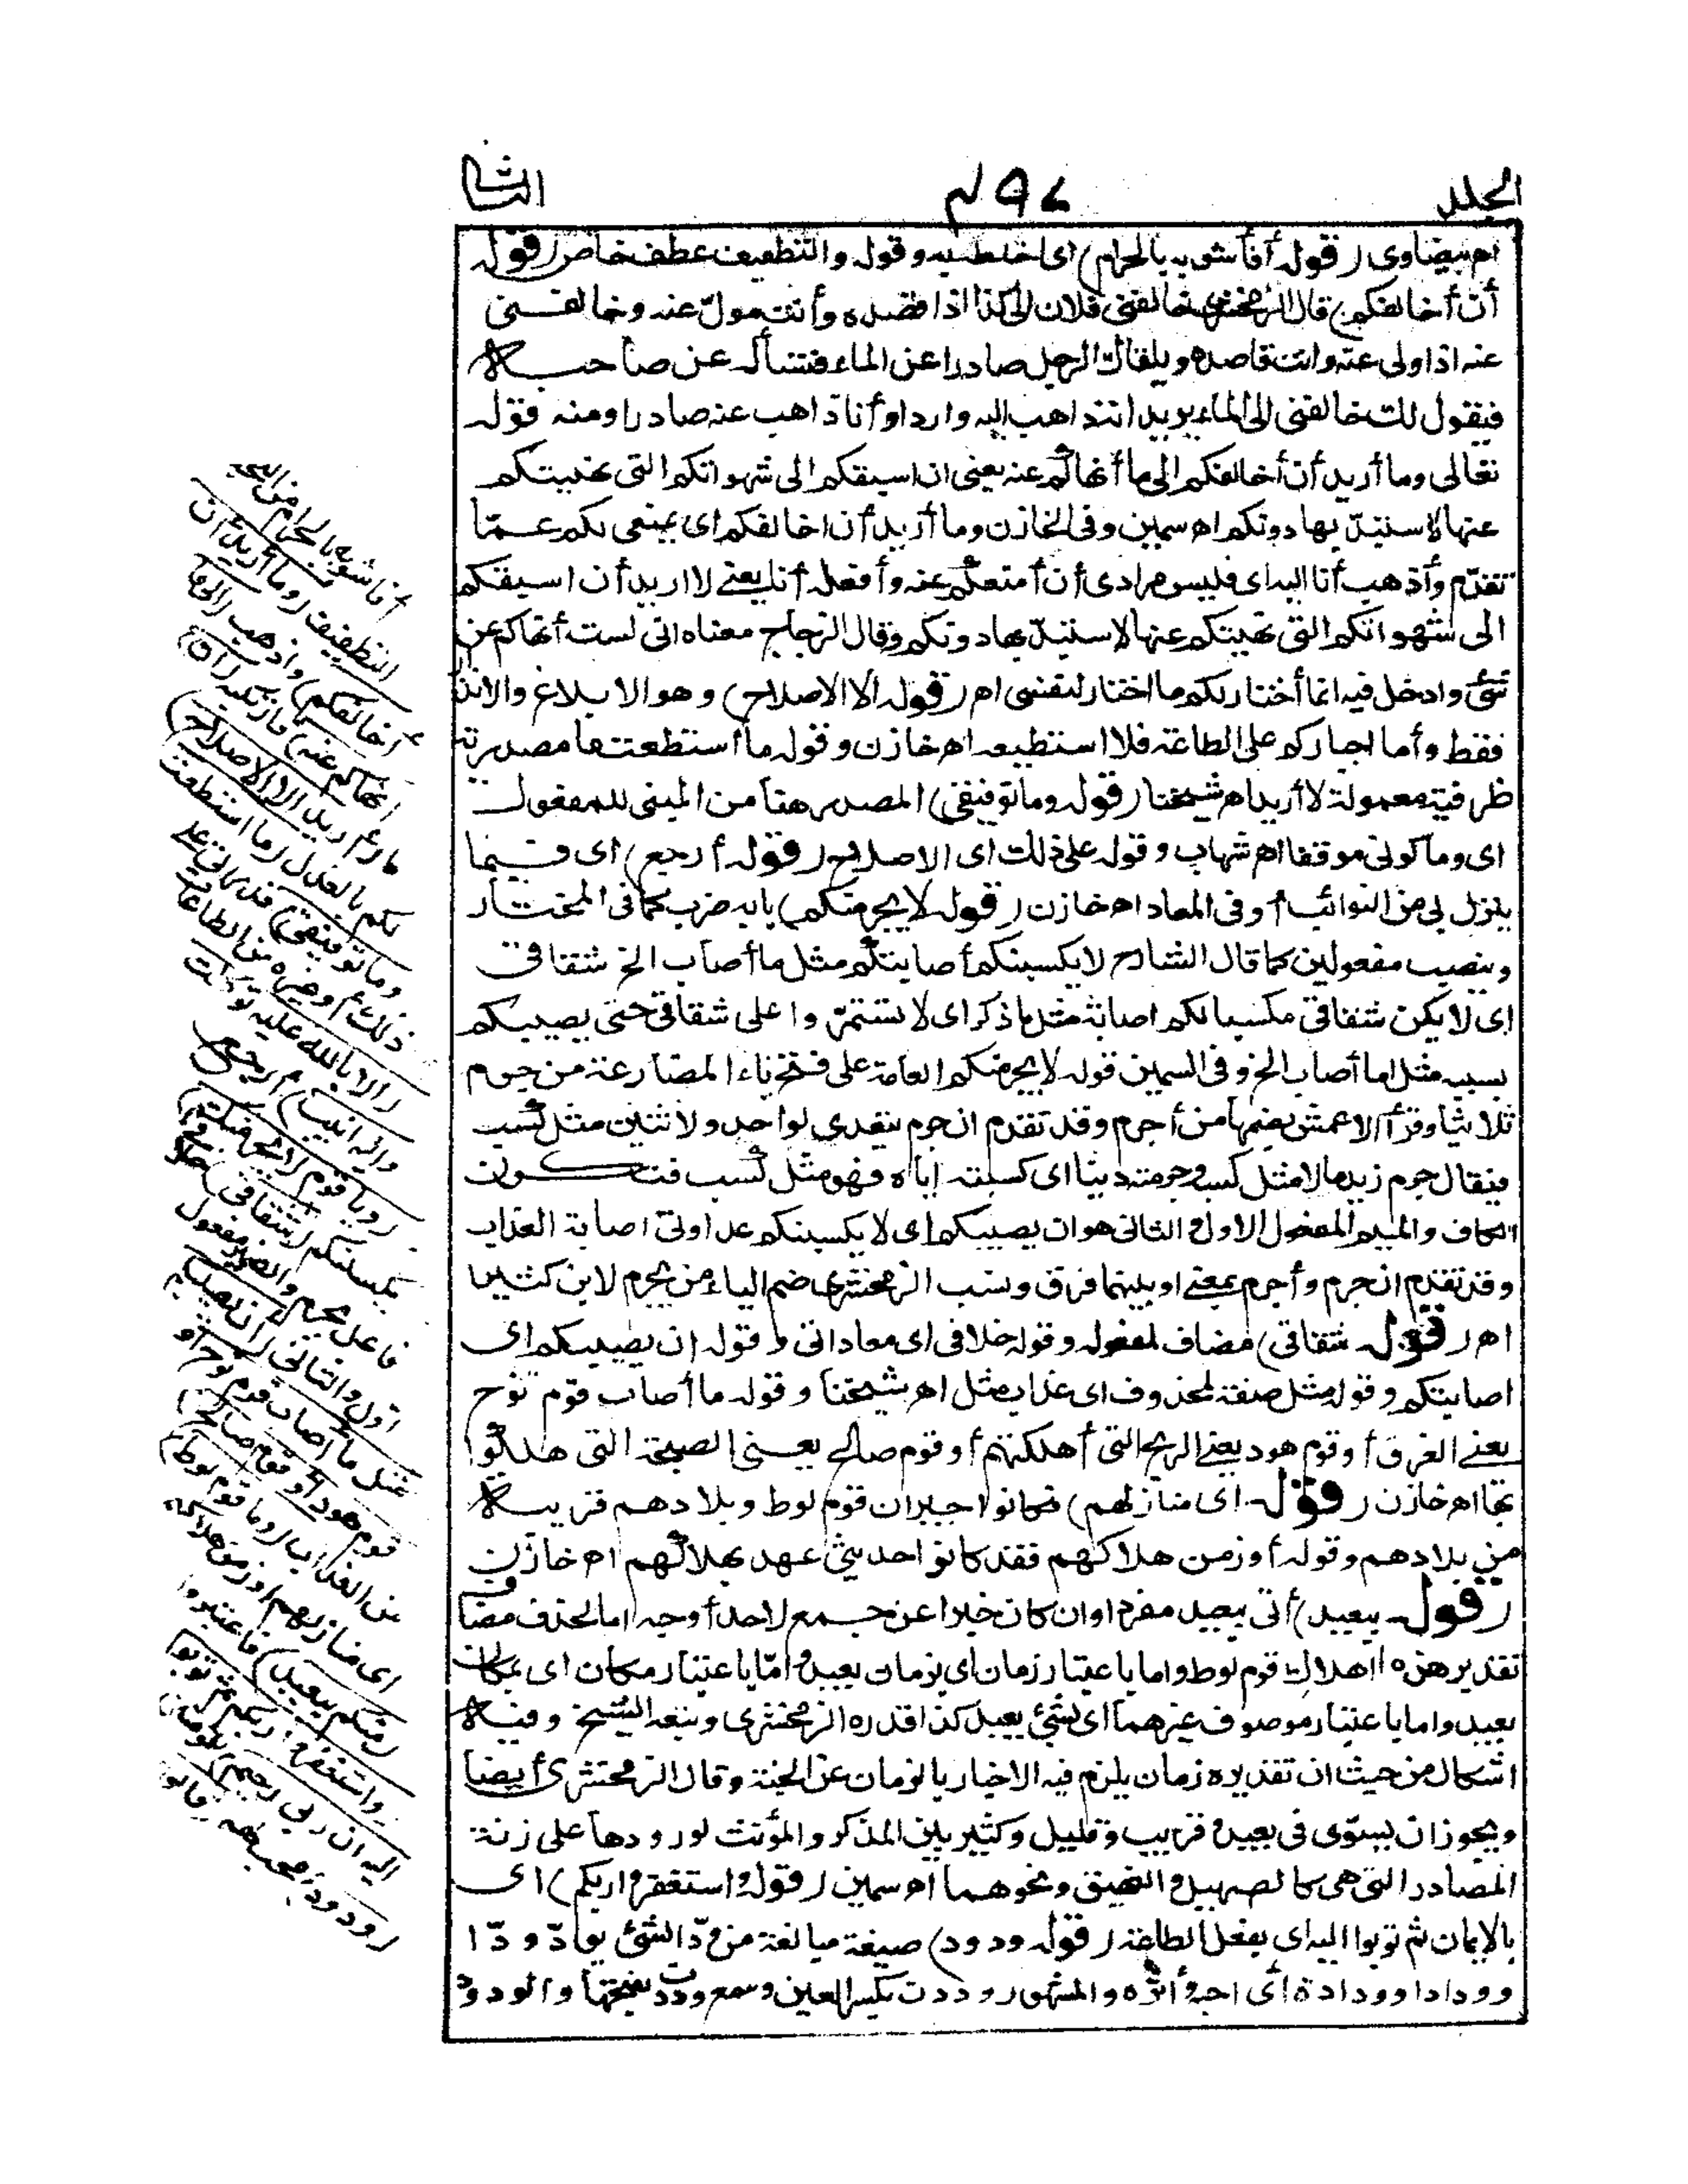 المجلد
٤٩٧
الثانى
اه بيضاوى (قوله أفأشوبه بالحرام) اى اخلطه به وقوله والتطفيف عطف خاص (قوله
أن أخالفكم) قال الزمخشرى خالفنى فلان الى كذا اذا قصده وأنت مولّ عنه وخالفنى
عنه اذا ولى عنه وانت قاصده ويلقاك الرجل صادرا عن الماء فتسأله عن صاحبه
فيقول لك خالفنى الى الماء يريد انه ذاهب اليه واردا وأنا ذاهب عنه صادرا ومنه قوله
تعالى وما أريد أن أخالفكم الى ما أنهاكم عنه يعنى ان اسبقكم الى شهواتكم التى نهيتكم
عنها لاستبدّ بها دونكم اه سمين وفى الخازن وما أريد أن اخالفكم اى بمنعى لكم عمّا
تقدّم وأذهب أنا اليه اى فليس مرادى أن أمنعكم عنه وأفعله أنا يعنى لا اريد أن اسبقكم
الى شهواتكم التى نهيتكم عنها لاستبدّ بها دونكم وقال الزجاج معناه انى لست أنهاكم عن
شئ وادخل فيه انما أختار لكم ما اختار لنفسى اه (قوله الا الاصلاح) وهو الابلاغ والانذار
فقط وأما اجباركم على الطاعة فلا استطيعه اه خازن وقوله ما استطعت ما مصدرية
ظرفية معمولة لا أريد اه شيخنا (قوله وما توفيقى) المصدر هنا من المبنى للمفعول
اى وما كونى موفقا اه شهاب وقوله على ذلك اى الاصلاح (قوله أرجع) اى فيما
ينزل بى من النوائب أو فى المعاد اه خازن (قوله لا يجرمنكم) بابه ضرب كما فى المختار
وينصب مفعولين كما قال الشارح لا يكسبنكم أصابتكم مثل ما أصاب الخ شقاقى
اى لا يكن شقاقى مكسبا لكم اصابة مثل ما ذكر اى لا تستمرّوا على شقاقى حتى يصيبكم
بسببه مثل ما أصاب الخ وفى السمين قوله لا يجرمنكم العامة على فتح ياء المضارعة من جرم
ثلاثيا وقرأ الاعمش بضمها من أجرم وقد تقدم ان جرم يتعدى لواحد ولاثنين مثل كسب
فيقال جرم زيد مالا مثل كسبه وجرمته ذنبا اى كسبته إياه فهو مثل كسب فتكون
الكاف والميم المفعول الاول والثانى هو ان يصيبكم اى لا يكسبنكم عداوتى اصابة العذاب
وقد تقدم ان جرم وأجرم بمعنى او بينهما فرق ونسب الزمخشرى ضم الياء من يجرم لابن كثير
اه (قوله شقاقى) مضاف لمفعوله وقوله خلافى اى معاداتى وقوله ان يصيبكم اى
اصابتكم وقوله مثل صفة لمحذوف اى عذاب مثل اه شيخنا وقوله ما أصاب قوم نوح
يعنى الغرق أو قوم هود يعنى الريح التى أهلكتهم أو قوم صالح يعنى الصيحة التى هلكوا
بها اه خازن (قوله اى منازلهم) فكانوا جيران قوم لوط وبلادهم قريبة
من بلادهم وقوله أو زمن هلاكهم فقد كانوا حديثى عهد بهلاكهم اه خازن
(قوله ببعيد) أتى ببعيد مفردا وان كان خبرا عن جمع لاحد أوجه اما لحذف مضاف
تقديره هذه ااهلاك قوم لوط واما باعتبار زمان اى بزمان بعيد وامّا باعتبار مكان اى بمكان
بعيد واما باعتبار موصوف غيرهما اى بشئ بعيد كذا قدره الزمخشرى وتبعه الشيخ وفيه
اشكال من حيث ان تقديره زمان يلزم فيه الاخبار بالزمان عن الجثة وقال الزمخشرى أيضا
ويجوز ان يسوّى فى بعيد وقريب وقليل وكثير بين المذكر والمؤنث لورودها على زنة
المصادر التى هى كالصهيل والنهيق ونحوهما اه سمين (قوله واستغفروا ربكم) اى
بالايمان ثم توبوا اليه اى بفعل الطاعة (قوله ودود) صيغة مبالغة من ودّ الشئ يودّ ودّا
وودادا وودادة اى احبه وأثره والمشهور وددت بكسر العين وسمع وددت بفتحها والودود
أفأشوبه بالحرام من البخس
والتطفيف (وما أريد أن
أخالفكم) وأذهب (الى ما
أنهاكم عنه) فارتكبه (ان)
ما (أريد الا الاصلاح)
لكم بالعدل (ما استطعت
وما توفيقى) قدرتى على
ذلك أو غيره من الطاعات
(الا بالله عليه توكلت
واليه انيب) أرجع
(ويا قوم لا يجرمنكم)
يكسبنكم (شقاقى) خلافى
فاعل يجرم والضمير مفعول
اول والثانى (ان يصيبكم
مثل ما أصاب قوم نوح أو
قوم هود أو قوم صالح)
من العذاب (وما قوم لوط)
اى منازلهم او زمن هلاكهم
(منكم ببعيد) فاعتبروا
(واستغفروا ربكم ثم توبوا
اليه ان ربى رحيم) بالمؤمنين
(ودود) محب لهم (قالوا